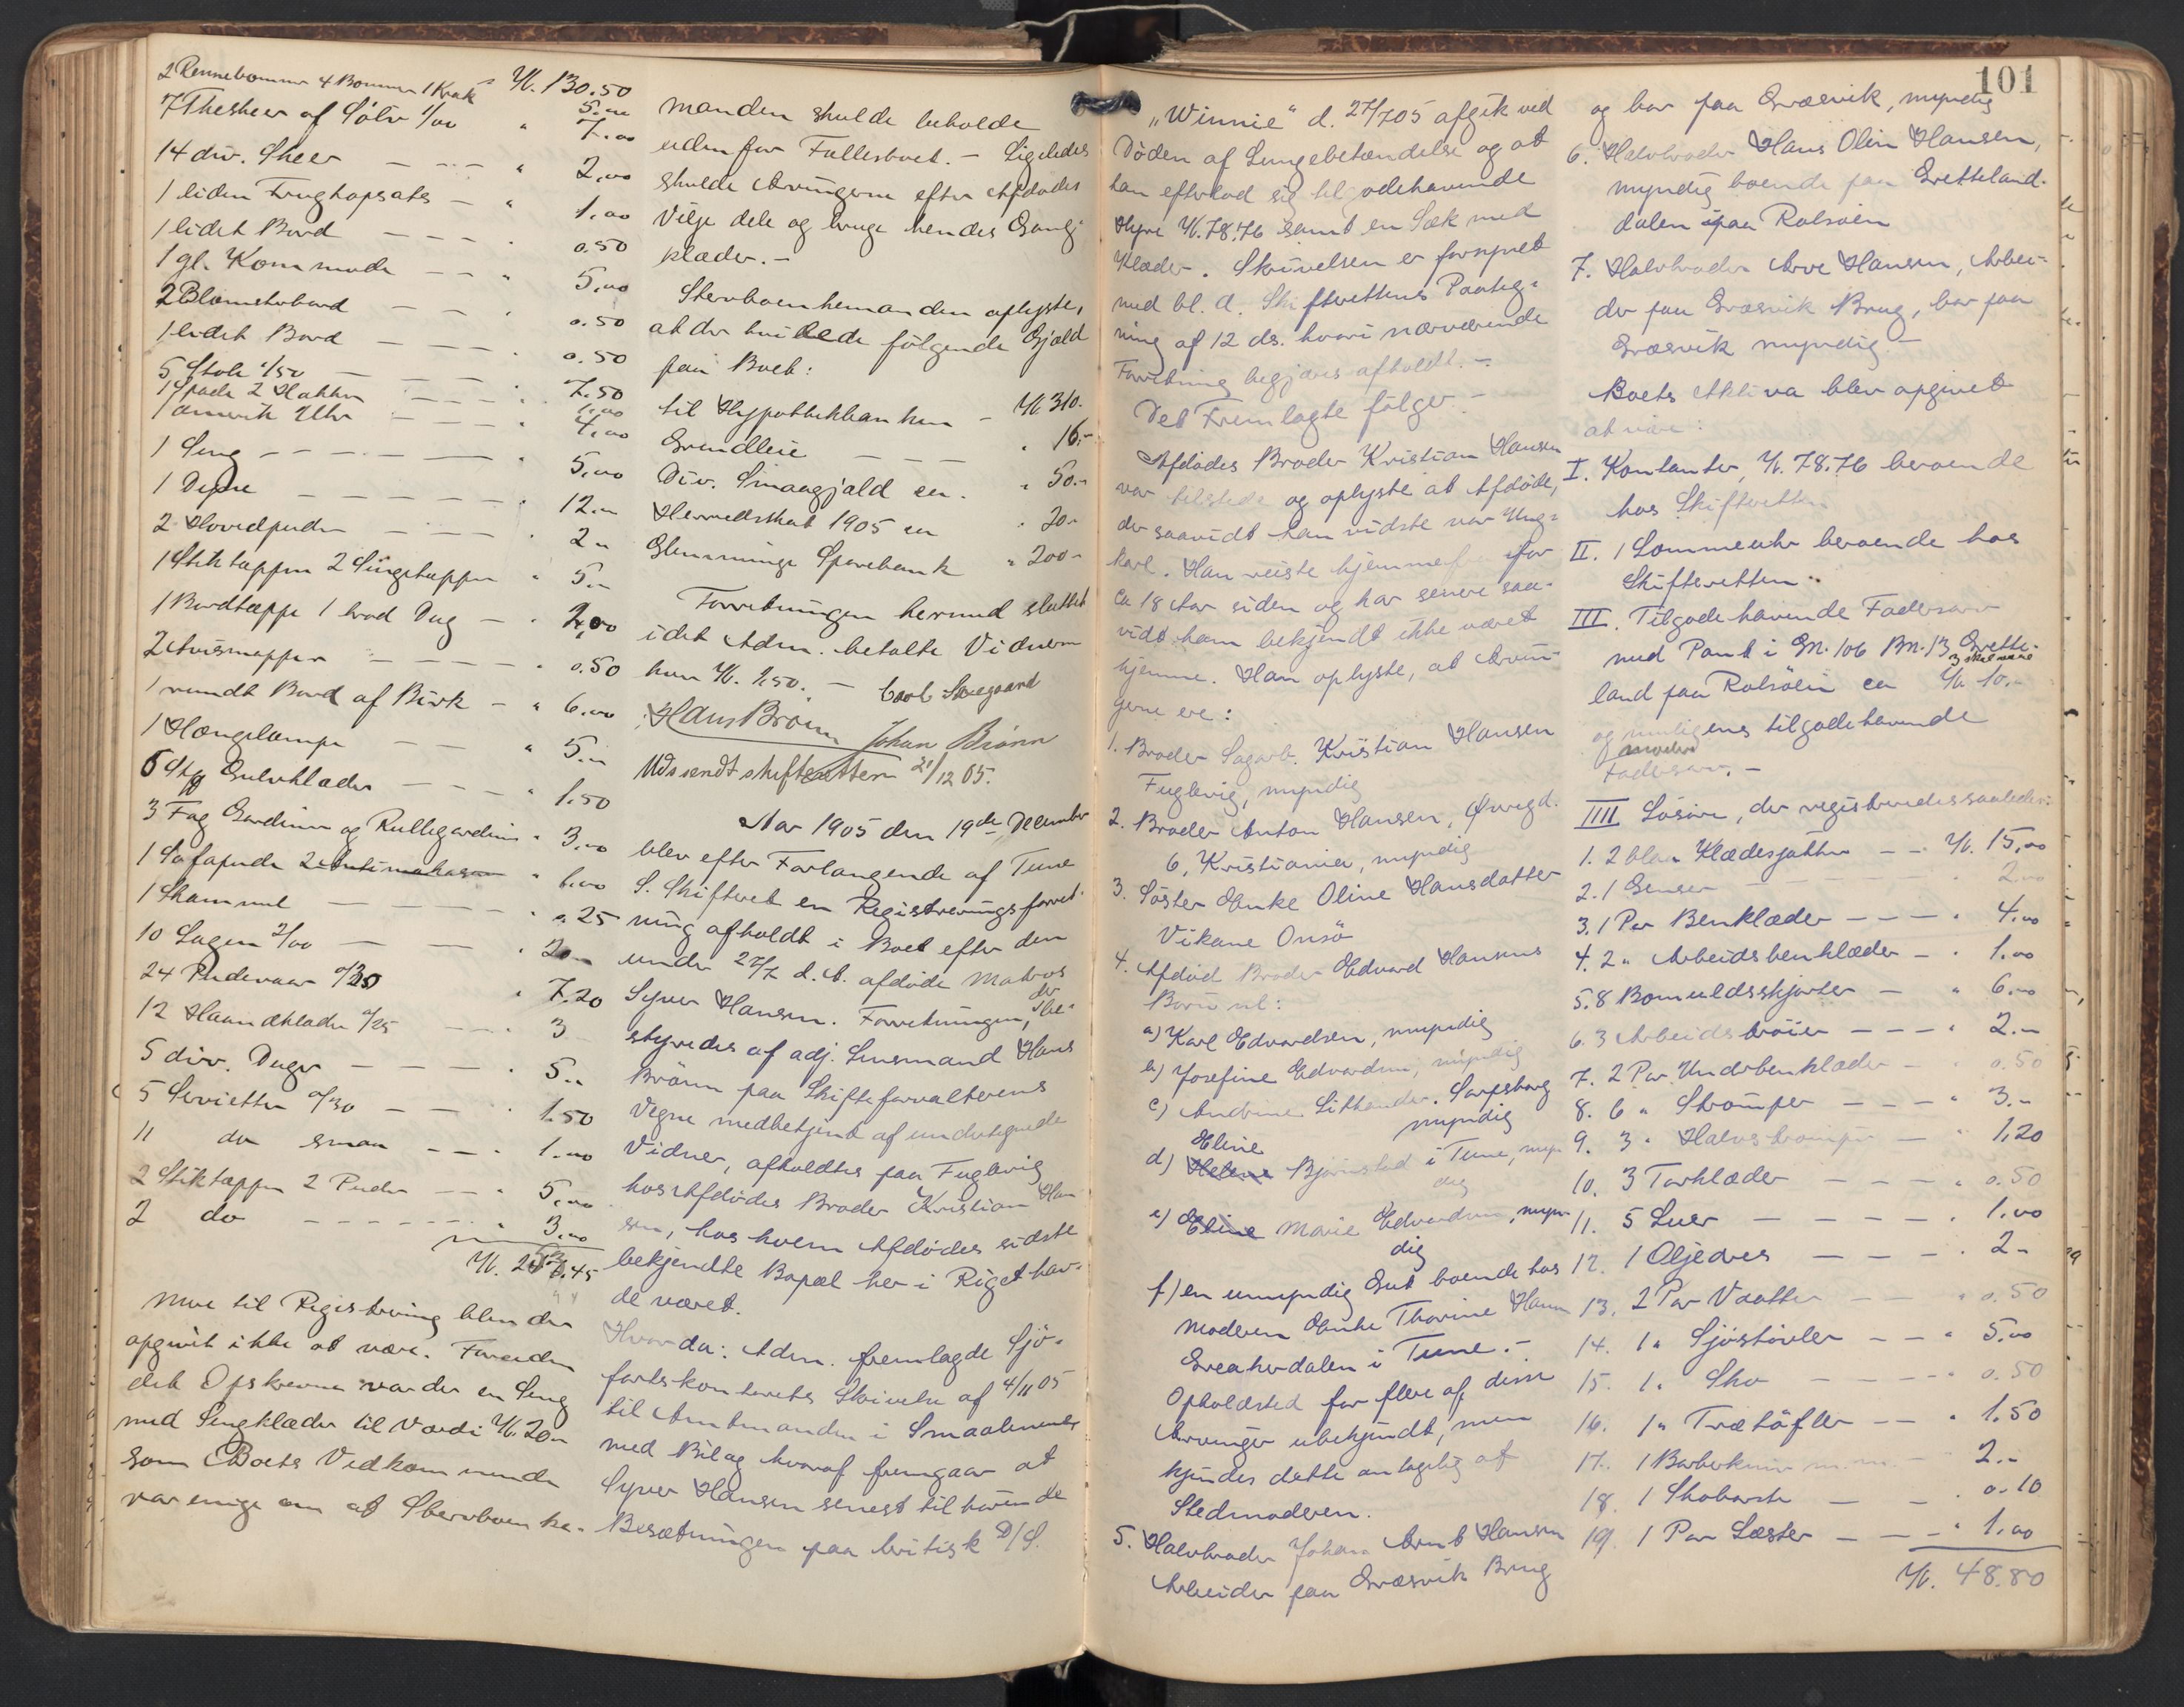 2 Rennebommer 4 Bommer 1 Krak Kr. 130.50
5.00
7 Theskeer af Sölv 1/00 " 7.00
14 div. Skeer — " 2.00
1 liden Frugtopsats — " 1.00
1 lidet Bord — 0.50
1 gl. Kommode — " 5.00
2 Blomsterbord — 0.50
1 lidet Bord — 0.50
5 Stole 1/50 — 7.50
1 Spade 2 Hakker — 1.00
1 amerik Uhr — 4.00
1 Seng — 5.00
1 Dyne — 12.–
2 Hovedpuder — 2.–
1 Stiktæppe 2 Sengetæpper " 5.–
1 Bordtæppe 1 hvid Dug — 2.00
2 Avismapper — 0.50
1 rundt Bord af Birk — " 6.00
1 Hængelampe — " 5.–
6 Stk Gulvklæder — " 1.50
3 Fag Gardiner og Rullegardiner " 3.00
1 Sofapude 2 Antimakasser " 1.00
1 Skammel — 0.25
10 Lagen 2/00 — 20.–
24 Pudevaar 0/30 " 7.20
12 Haandklæder 0/25 — 3
5 div. Duger — 5.–
5 Servietter 0/30 — 1.50
11 do smaa — 1.00
2 Stiktæpper 2 Puder — " 5.00
2 do — " 3.00
Mere til Registrering blev der
opgivet ikke at være. Foruden
det Opskrevne var der en Seng
med Sengklæder til Værdi Kr. 20.–
som Boets Vedkommende
var enige om at Stervboenke-
manden skulde beholde
udenfor Fællesboet. – Ligeledes
skulde Arvingerne efter Afdødes
Vilje dele og bruge hendes Gang-
klæder. –
Stervboenkemanden oplyste,
at der hvilede følgende Gjæld
paa Boet:
til Hypothekbanken – Kr. 310.–
Grundleie — " 16.–
Div. Smaagjæld ca. " 50.–
Herredsskat 1905 ca " 20.–
Glemminge Sparebank " 200.–
Forretningen hermed sluttet
idet Adm. betalte Vidnerne
hver Kr. 1.50. –
Hans Brönn Johan Brönn
Udsendt skifteretten 21/12 05.
Aar 1905 den 19de December
blev efter Forlangende af Tune
S. Skifteret en Registreringsforret-
ning afholdt i Boet efter den
under 27/7 d. A. afdøde Matros
Syver Hansen. Forretningen, der be-
styredes af adj. Lensmand Hans
Brönn paa Skifteforvalterens
Vegne medbetjent af undertegnede
Vidner, afholdtes paa Fuglevig
hos Afdødes Broder Kristian Han
sen, hos hvem Afdødes sidste
bekjendte Bopæl her i Riget hav-
de været.
Hvorda: Adm. fremlagde Sjö-
fartskontorets Skrivelse af 4/11 05
til Amtmanden i Smaalenene
med Bilag hvoraf fremgaar at
Syver Hansen senest tilhørende
Besætningen paa britisk D/S.
101
"Winnie" d. 27/7 05 afgik ved
Döden af Lungebetændelse og at
han efterlod sig tilgodehavende
Hyre Kr. 78.76 samt en Sæk med
Klæder. Skrivelsen er forsynet
med bl. a. Skifterettens Paateg-
ning af 12 ds. hvori nærværende
Forretning begjæres afholdt. –
Det Fremlagte følger –
Afdødes Broder Kristian Hansen
var tilstede og oplyste at Afdøde,
der saavidt han vidste var Ung-
karl. Han reiste hjemmefra for
ca 18 Aar siden og har senere saa-
vidt ham bekjendt ikke været
hjemme. Han oplyste, at Arvin-
gerne ere:
1. Broder Sagarb. Kristian Hansen
Fuglevig, myndig
2. Broder Anton Hansen, Øvregd.
6, Kristiania, myndig
3. Söster Enke Oline Hansdatter
Vikane Onsö
4. Afdöd Broder Edvard Hansens
Börn nl:
a) Karl Edvardsen, myndig
b) Josefine Edvardsen, myndig
c) Andrine Sarpsborg
myndig
d) Eline Bjørnstad i Tune, myn
dig
e) Marie Edvardsen, myn
dig
f) en umyndig Gut boende hos
Moderen Enke Thorine Hansen
Greakerdalen i Tune. –
Opholdsted for flere af disse
Arvinger ubekjendt, men
kjendes dette antagelig af
Stedmoderen.
5. Halvbroder Johan Arnt Hansen
Arbeider paa Græsvik Brug
og bor paa Græsvik, myndig
6. Halvbroder Hans Olin Hansen,
myndig boende paa Gretteland-
dalen paa Rolsöen
7. Halvbroder Arve Hansen, Arbei-
der paa Græsvik Brug, bor paa
Græsvik myndig –
Boets Aktiva blev opgivet
at være:
I. Kontanter, Kr. 78.76 beroende
hos Skifteretten
II. 1 Lommeuhr beroende hos
Skifteretten. –
III. Tilgodehavende Faderarv
med Pant i Gn. 106 Bn. 13 Grette-
land paa Rolsöen ca Kr. 10.–
og muligens tilgodehavende
moder
Faderarv. –
IIII Lösöre, der registreredes saaledes:
1. 2 blaa Klædesjakker — Kr. 15.00
2. 1 Genser — 2.00
3. 1 Par Benklæder — " 4.00
4. 2 " Arbeidsbenklæder — " 1.00
5. 8 Bomuldsskjorter — " 6.00
6. 3 Arbeidströier — " 2.–
7. 2 Par Underbenklæder — " 0.50
8. 6 " Strömper — " 3.–
9. 3 " Halvströmper — " 1.20
10. 3 Tørklæder — " 0.50
11. 5 Luer — " 1.00
12. 1 Oljedres — " 2.–
13. 2 Par Vaatter — " 0.50
14. 1 " Sjöstövler — " 5.00
15. 1 " Sko — " 0.50
16. 1 " Trætöfler — " 1.50
17. 1 Barberkniv m.m. — 2.–
18. 1 Skobørste — " 0.10
19. 1 Par Læster — " 1.00
Kr. 48.80